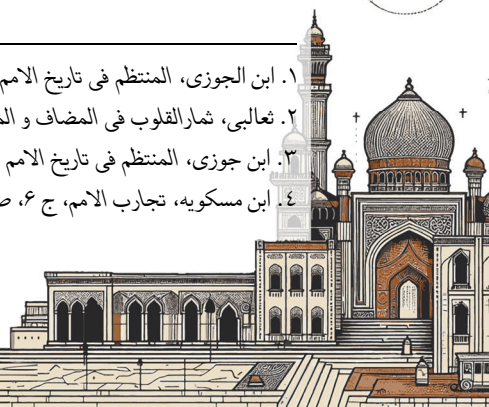 ۱. ابن الجوزی، المنتظم فی تاریخ الامم
۲. ثعالبی، ثمارالقلوب فی المضاف و
۳. ابن جوزی، المنتظم فی تاریخ الامم
٤. ابن مسکویه، تجارب الامم، ج ۶،